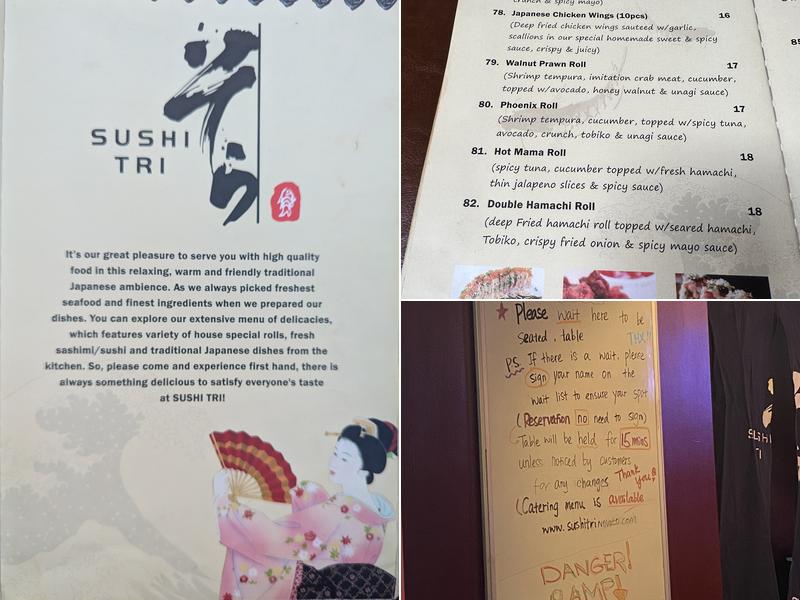 SUSHI
TRI
It's our great pleasure to serve you with high quality
food in this relaxing, warm and friendly traditional
Japanese ambience. As we always picked freshest
seafood and finest ingredients when we prepared our
dishes. You can explore our extensive menu of delicacies,
which features variety of house special rolls, fresh
sashimi/sushi and traditional Japanese dishes from the
kitchen. So, please come and experience first hand, there is
always something delicious to satisfy everyone's taste
at SUSHI TRI!
crunch & spicy mayo)
78. Japanese Chicken Wings (10pcs) 16
(Deep fried chicken wings sauteed w/garlic,
scallions in our special homemade sweet & spicy
sauce, crispy & juicy)
79. Walnut Prawn Roll 17
(Shrimp tempura, imitation crab meat, cucumber,
topped w/avocado, honey walnut & unagi sauce)
80. Phoenix Roll 17
(Shrimp tempura, cucumber, topped w/spicy tuna,
avocado, crunch, tobiko & unagi sauce)
81. Hot Mama Roll 18
(spicy tuna, cucumber topped w/fresh hamachi,
thin jalapeno slices & spicy sauce)
82. Double Hamachi Roll 18
(deep Fried hamachi roll topped w/seared hamachi,
Tobiko, crispy fried onion & spicy mayo sauce)
★ Please wait here to be
seated. table THX!!
P.S. If there is a wait. please
sign your name on the
wait list to ensure your spot
(Reservation no need to sign)
(Table will be held for 15 mins
unless noticed by customers
for any changes Thank you
(Catering menu is available
www.sushitrinovato.com
DANGER!
RAMP!
SUSHI
TRI